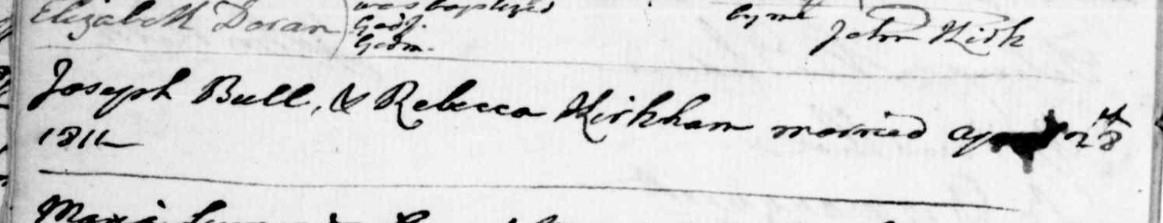 Elizabeth Doran was baptized by me
Godf.
Godm. John Kirk
Joseph Bull, & Rebecca Kirkham married April 28th
1811